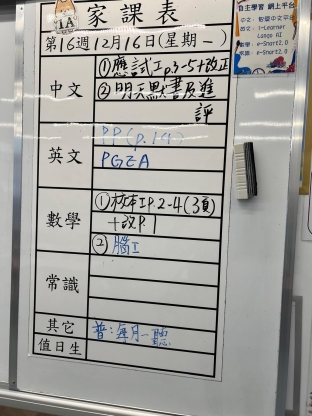 1A
家課表
第16週12月16日(星期一)
中文
①應試工p.3-5+改正
②明天默書及進
評
英文
PP(p.14)
PGEA
數學
①校本工P.2-4(3頁)
+改P.1
②腦工
常識
其它
普:每月一聽
值日生
自主學習 網上平台
中文:智愛中文平台
英文:i-Learner
Lango AI
數學:e-Smart2.0
常識:e-Smart2.0